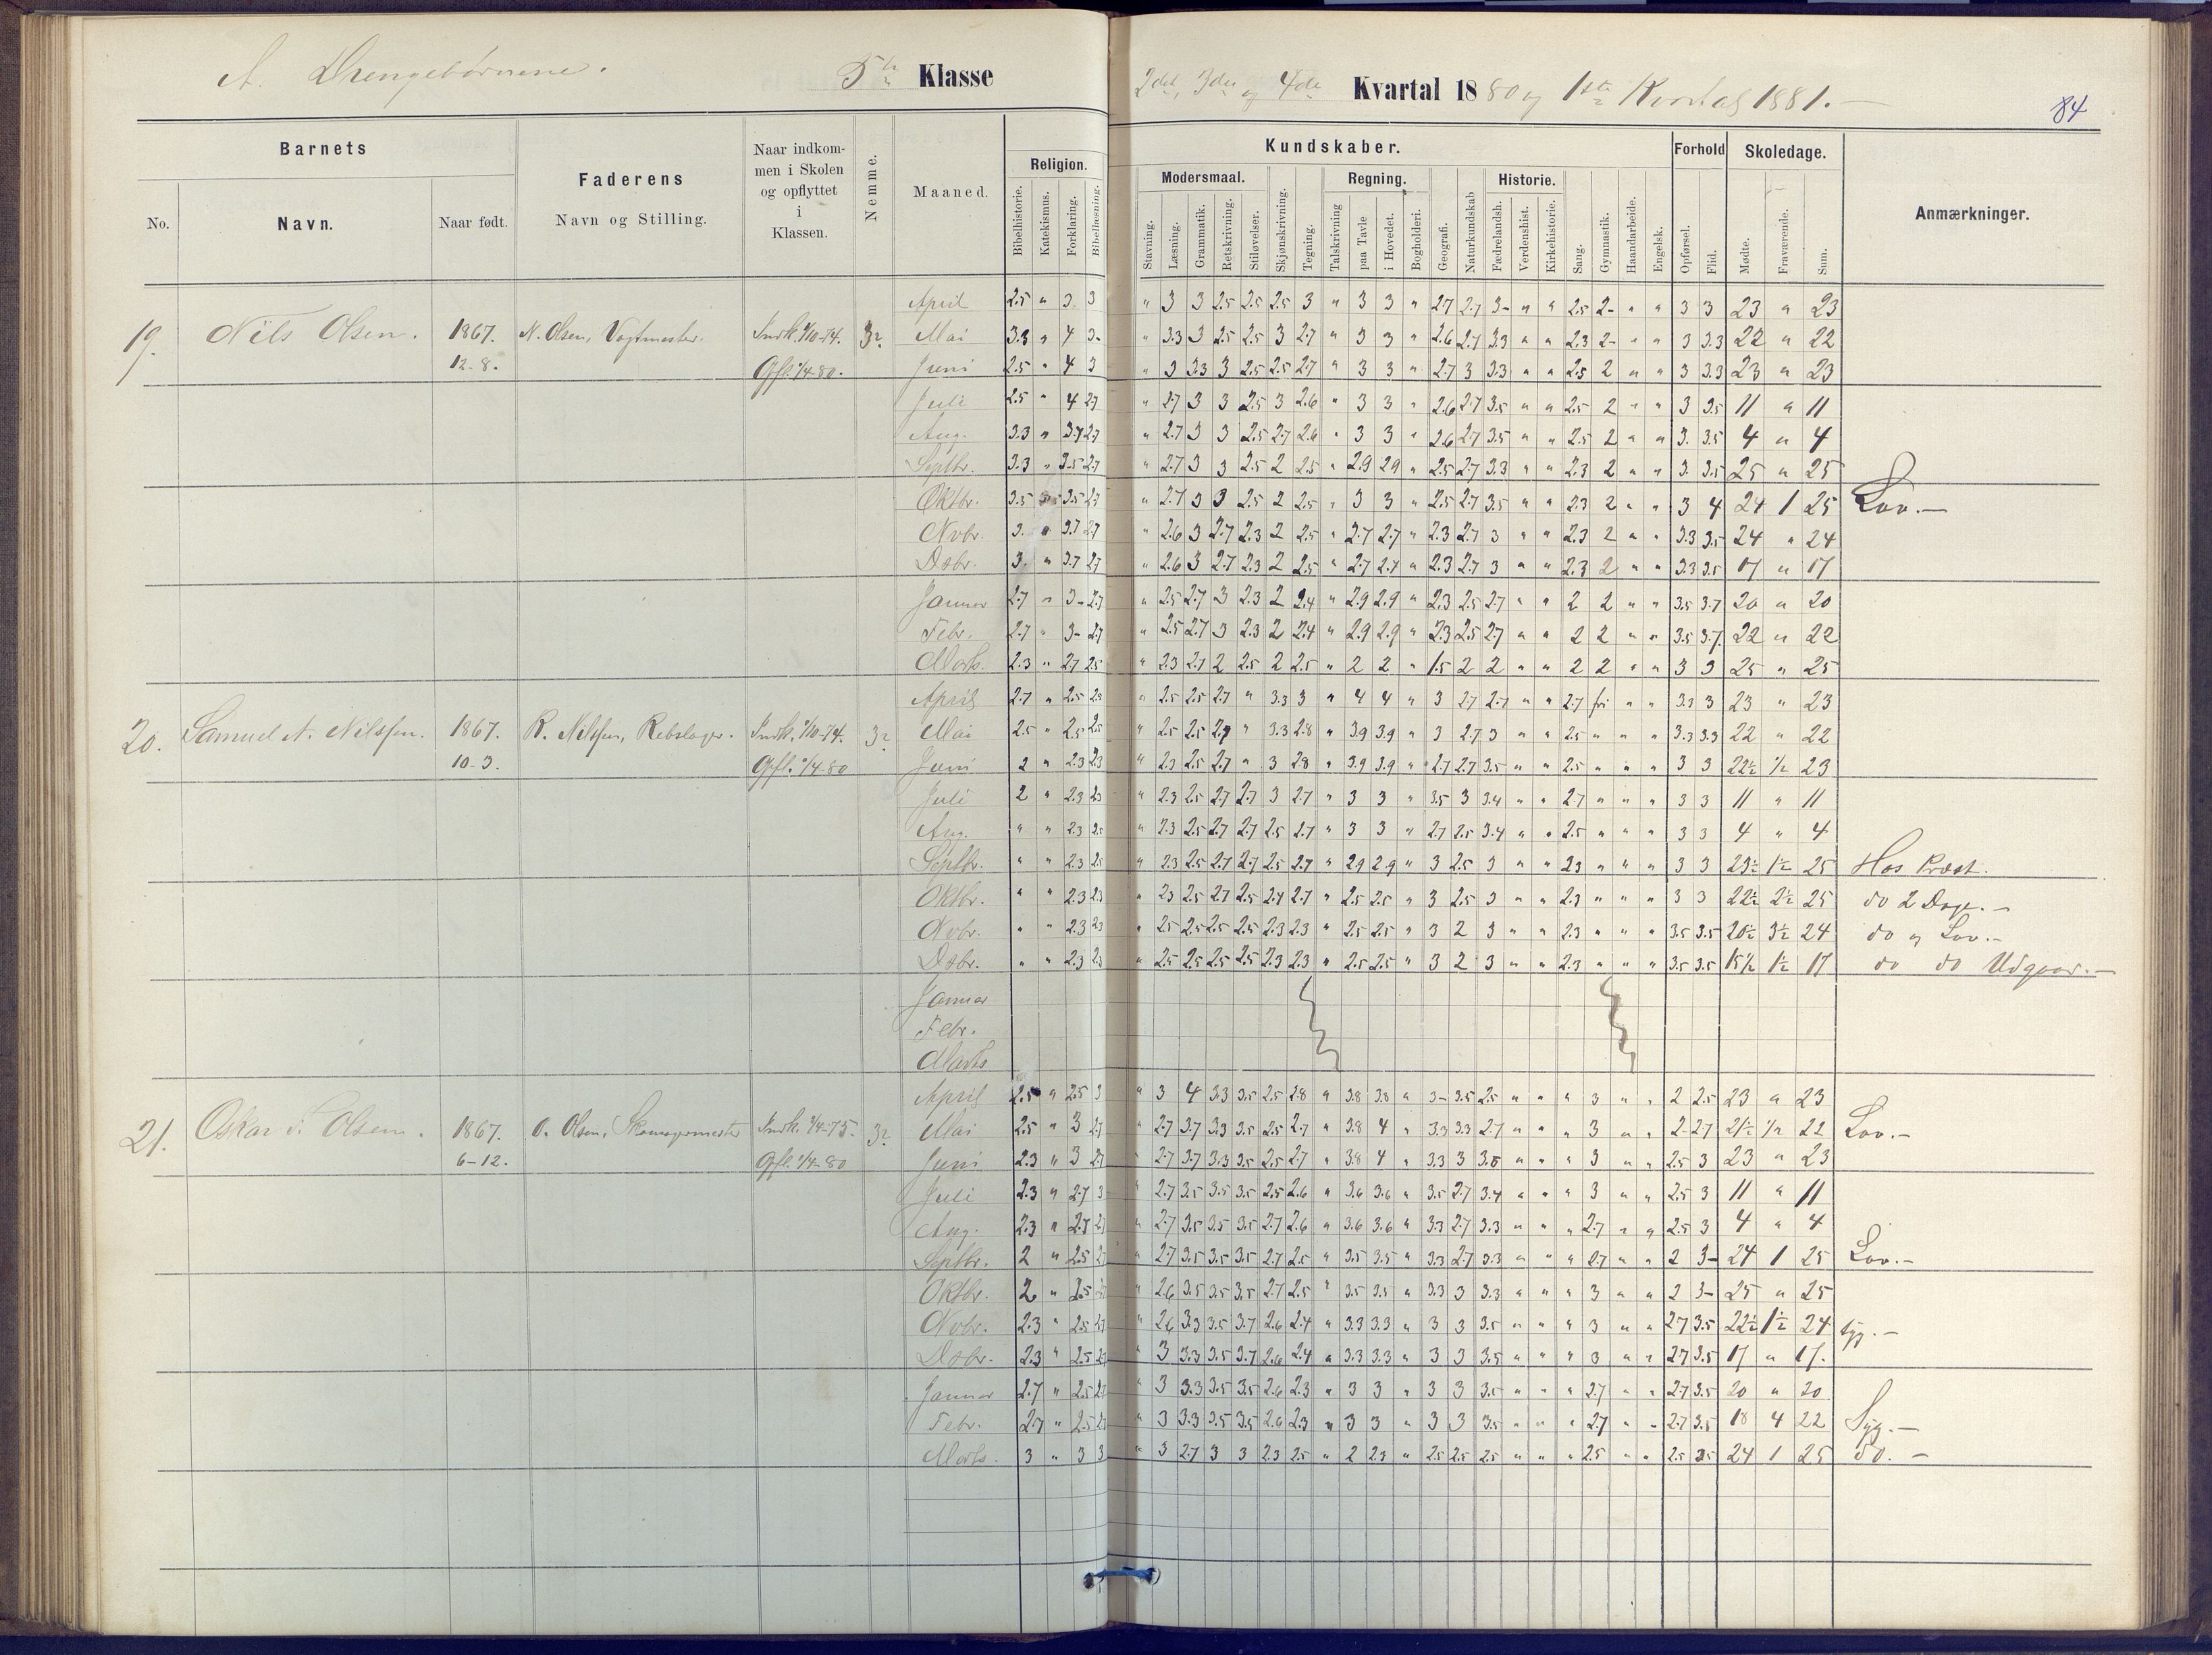 A. Drengebørnene. 5te Klasse
2det, 3die og 4de Kvartal 1880 og 1ste Kvartal 1881. —
84
Barnets
Faderens
Naar indkommen i Skolen og opflyttet i Klassen.
Nemme.
Maaned.
Religion.
Kundskaber.
Forhold
Skoledage.
Anmærkninger.
No.
Navn.
Naar født.
Navn og Stilling.
Bibelhistorie. Katekismus. Forklaring. Bibellæsning.
Modersmaal. Regning. Historie.
Stavning. Læsning. Grammatik. Retskrivning. Stiløvelser. Skjønskrivning. Tegning. Talskrivning paa Tavle i Hovedet. Bogholderi. Geografi. Naturkundskab Fædrelandsh. Verdenshist. Kirkehistorie. Sang. Gymnastik. Haandarbeide. Engelsk. Opførsel. Flid. Mødte. Fraværende. Sum.
April 2.5 " 3. 3 " 3 3 2.5 2.5 2.5 3 " 3 3 " 2.7 2.7 3- " " 2.5 2- " " 3 3 23 " 23
19. Nils Olsen. 1867. N. Olsen, Vagtmester. Indk. 1/10-74. 3? Mai 3.3 " 4 3- " 3.3 3 2.5 2.5 3 2.7 " 3 3 " 2.6 2.7 3.3 " " 2.3 2- " " 3 3.3 22 " 22
12-8. Opfl. 1/4-80. Juni 2.5 " 4 3 " 3 3.3 3 2.5 2.5 2.7 " 3 3 " 2.7 3 3.3 " " 2.5 2 " " 3 3.3 23 " 23
Juli 2.5 " 4 2.7 " 2.7 3 3 2.5 3 2.6 " 3 3 " 2.6 2.7 3.5 " " 2.5 2 " " 3 3.5 11 " 11
Aug. 3.3 " 3.7 2.7 " 2.7 3 3 2.5 2.7 2.6 " 3 3 " 2.6 2.7 3.5 " " 2.5 2 " " 3. 3.5 4 " 4
Septbr. 3.3 " 3.5 2.7 " 2.7 3 3 2.5 2 2.5 " 2.9 2.9 " 2.5 2.7 3.3 " " 2.3 2 " " 3. 3.5 25 " 25
Oktbr. 3.5 3.5 2.7 " 2.7 3 3 2.5 2 2.5 " 3 3 " 2.5 2.7 3.5 " " 2.3 2 " " 3 4 24 1 25 Lov. —
Novbr. 3. " 3.7 2.7 " 2.6 3 2.7 2.3 2 2.5 " 2.7 2.7 " 2.3 2.7 3 " " 2.3 2 " " 3.3 3.5 24 " 24
Dsbr. 3. " 3.7 2.7 " 2.6 3 2.7 2.3 2 2.5 " 2.7 2.7 " 2.3 2.7 3 " " 2.3 2 " " 3.3 3.5 17 " 17
Januar 2.7 " 3- 2.7 " 2.5 2.7 3 2.3 2 2.4 " 2.9 2.9 " 2.3 2.5 2.7 " " 2 2 " " 3.5 3.7 20 " 20
Febr. 2.7 " 3- 2.7 " 2.5 2.7 3 2.3 2 2.4 " 2.9 2.9 " 2.3 2.5 2.7 " " 2 2 " " 3.5 3.7 22 " 22
Marts. 2.3 " 2.7 2.5 " 2.3 2.7 2 2.5 2 2.5 " 2 2 " 1.5 2 2 " " 2 2 " " 3 3 25 " 25
April 2.7 " 2.5 2.5 " 2.5 2.5 2.7 " 3.3 3 " 4 4 " 3 2.7 2.7 " " 2.7 fri " " 3.3 3 23 " 23
20. Samuel N. Nilssen. 1867. R. Nilssen, Rebslager. Indk. 1/10-74. 3? Mai 2.5 " 2.5 2.5 " 2.5 2.5 2.7 " 3.3 2.8 " 3.9 3.9 " 3 2.7 3 " " 2.5 " " " 3.3 3.3 22 " 22
10-3. Opfl. 1/4-80 Juni 2 " 2.3 2.3 " 2.3 2.5 2.7 " 3 2.8 " 3.9 3.9 " 2.7 2.7 3.5 " " 2.5 " " " 3 3 22½ ½ 23
Juli 2 " 2.3 2.3 " 2.3 2.5 2.7 2.7 3 2.7 " 3 3 " 3.5 3 3.4 " " 2.7 " " " 3 3 11 " 11
Aug. " " 2.3 2.5 " 2.3 2.5 2.7 2.7 2.5 2.7 " 3 3 " 2.7 2.5 3.4 " " 2.5 " " " 3 3 4 " 4
Septbr. " " 2.3 2.5 " 2.3 2.5 2.7 2.7 2.5 2.7 " 2.9 2.9 " 3 2.5 3 " " 2.3 " " " 3 3 23½ 1½ 25 Hos Præst.
Oktbr. " " 2.3 2.3 " 2.3 2.5 2.7 2.5 2.4 2.7 " 2.5 2.5 " 3 2.5 3 " " 2.3 " " " 3 3 22½ 2½ 25 do 2 Dage. —
Novbr. " " 2.3 2.3 " 2.5 2.5 2.5 2.5 2.3 2.3 " 2.5 2.5 " 3 2 3 " " 2.3 " " " 3.5 3.5 20½ 3½ 24 do og Lov. —
Dsbr. " " 2.3 2.3 " 2.5 2.5 2.5 2.5 2.3 2.3 " 2.5 2.5 " 3 2 3 " " 2.3 " " " 3.5 3.5 15½ 1½ 17 do do Udgaar. —
Januar
Febr.
Marts
April 2.5 " 2.5 3 " 3 4 3.3 3.5 2.5 2.8 " 3.8 3.8 " 3- 3.5 2.5 " " " 3 " " 2 2.5 23 " 23
21. Oskar F. Olsen. 1867. O. Olsen, Skomagermester Indk. 1/4-75. 3? Mai 2.5 " 3 2.7 " 2.7 3.7 3.3 3.5 2.5 2.7 " 3.8 4 " 3.3 3.3 2.7 " " " 3 " " 2- 2.7 21½ ½ 22 Lov. —
6-12. Opfl. 1/4-80 Juni 2.3 " 3 2.7 " 2.7 3.7 3.3 3.5 2.5 2.7 " 3.8 4 " 3.3 3 3.5 " " " 3 " " 2.5 3 23 " 23
Juli 2.3 " 2.7 3 " 2.7 3.5 3.5 3.5 2.5 2.6 " 3.6 3.6 " 3.5 2.7 3.4 " " " 3 " " 2.5 3 11 " 11
Aug. 2.3 " 2.7 2.7 " 2.7 3.5 3.5 3.5 2.7 2.6 " 3.6 3.6 " 3.3 2.7 3.3 " " " 2.7 " " 2.5 3 4 " 4
Septbr. 2 " 2.5 2.7 " 2.7 3.5 3.5 3.5 2.7 2.5 " 3.5 3.5 " 3.3 2.7 3.3 " " " 2.7 " " 2 3- 24 1 25 Lov. —
Oktbr. 2 " 2.5 " 2.6 3.5 3.5 3.5 2.7 2.5 " 3.5 3.5 " 3.3 3 3.3 " " " 3 " " 2 3- 25 " 25
Novbr. 2.3 " 2.5 2.7 " 2.6 3.3 3.5 3.7 2.6 2.4 " 3.3 3.3 " 3 3 3.5 " " " 3 " " 2.7 3.5 22½ 1½ 24 Syg. —
Dsbr. 2.3 " 2.5 2.7 " 3 3.3 3.5 3.7 2.6 2.4 " 3.3 3.3 " 3 3 3.5 " " " 3 " " 2.7 3.5 17 " 17.
Januar 2.7 " 2.5 2.5 " 3 3.3 3.5 3.5 2.6 2.3 " 3 3 " 3 3 3.5 " " " 2.7 " " 2.7 3.5 20 " 20
Febr. 2.7 " 2.5 2.5 " 3 3.3 3.5 3.5 2.6 2.3 " 3 3 " 3 3 3.5 " " " 2.7 " " 2.7 3.5 18 4 22 Syg. —
Marts. 3 " 3 3 " 3 2.7 3 3 2.3 2.5 " 2 2.3 " 2.5 2.5 2.5 " " " 2.5 " " 2.5 3.5 24 1 25 do. —